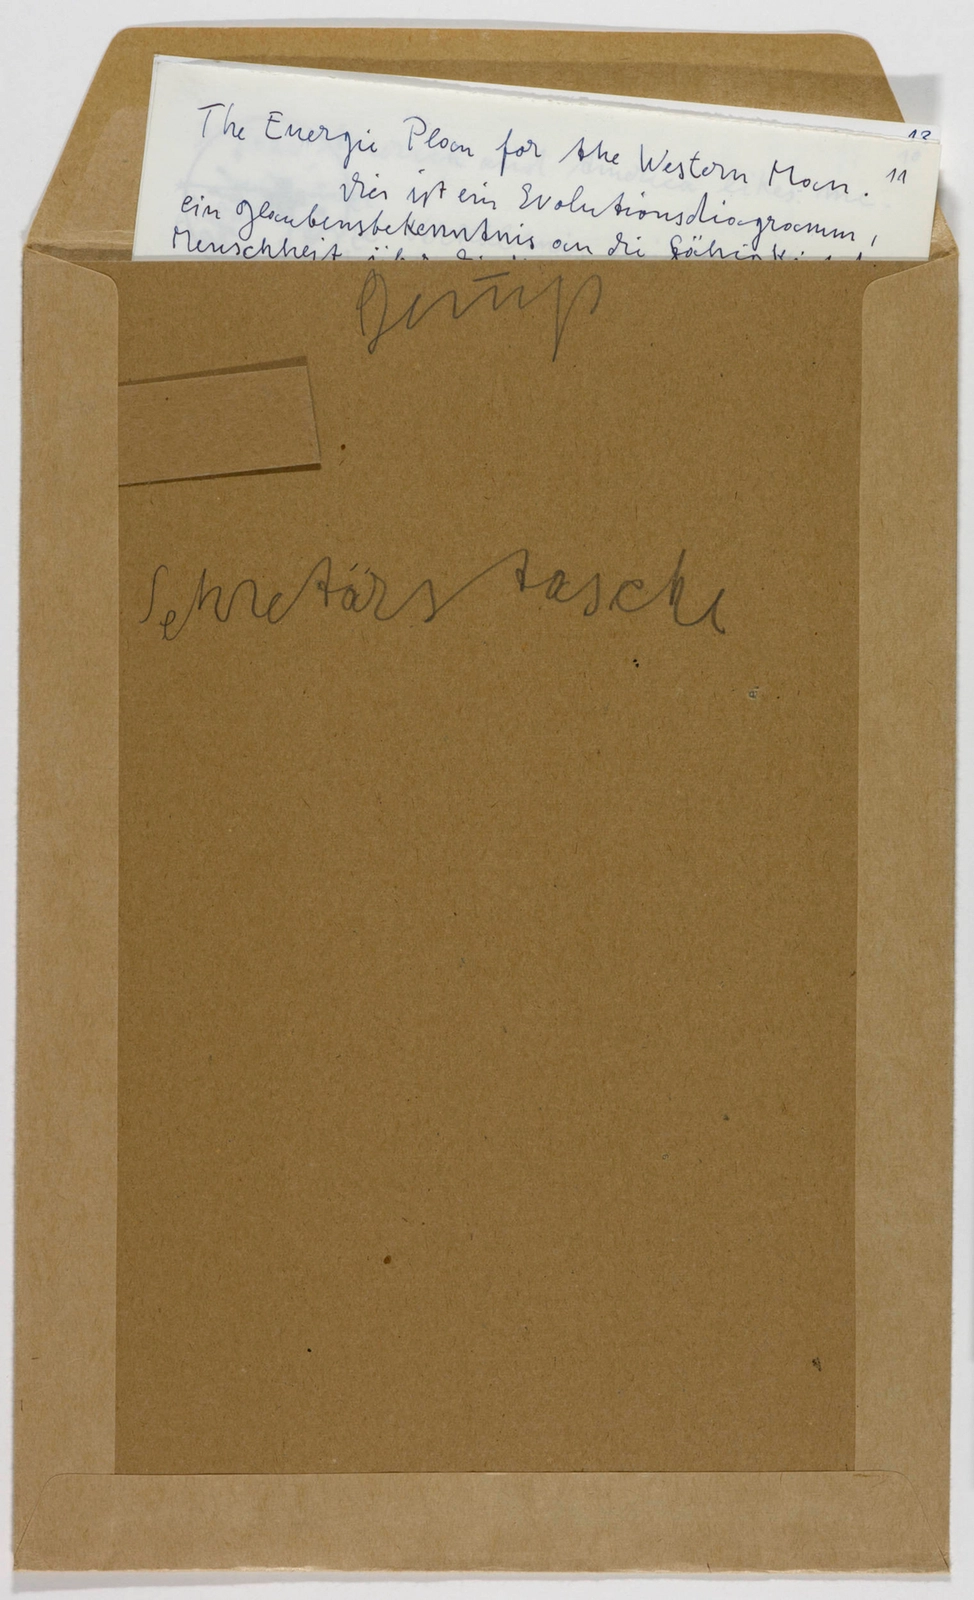 12
11
The Energie Plan for the Western Man.
Dies ist ein Evolutionsdiagramm,
ein Glaubensbekenntnis an die Fähigkeit
Menschheit
Sekretärstasche